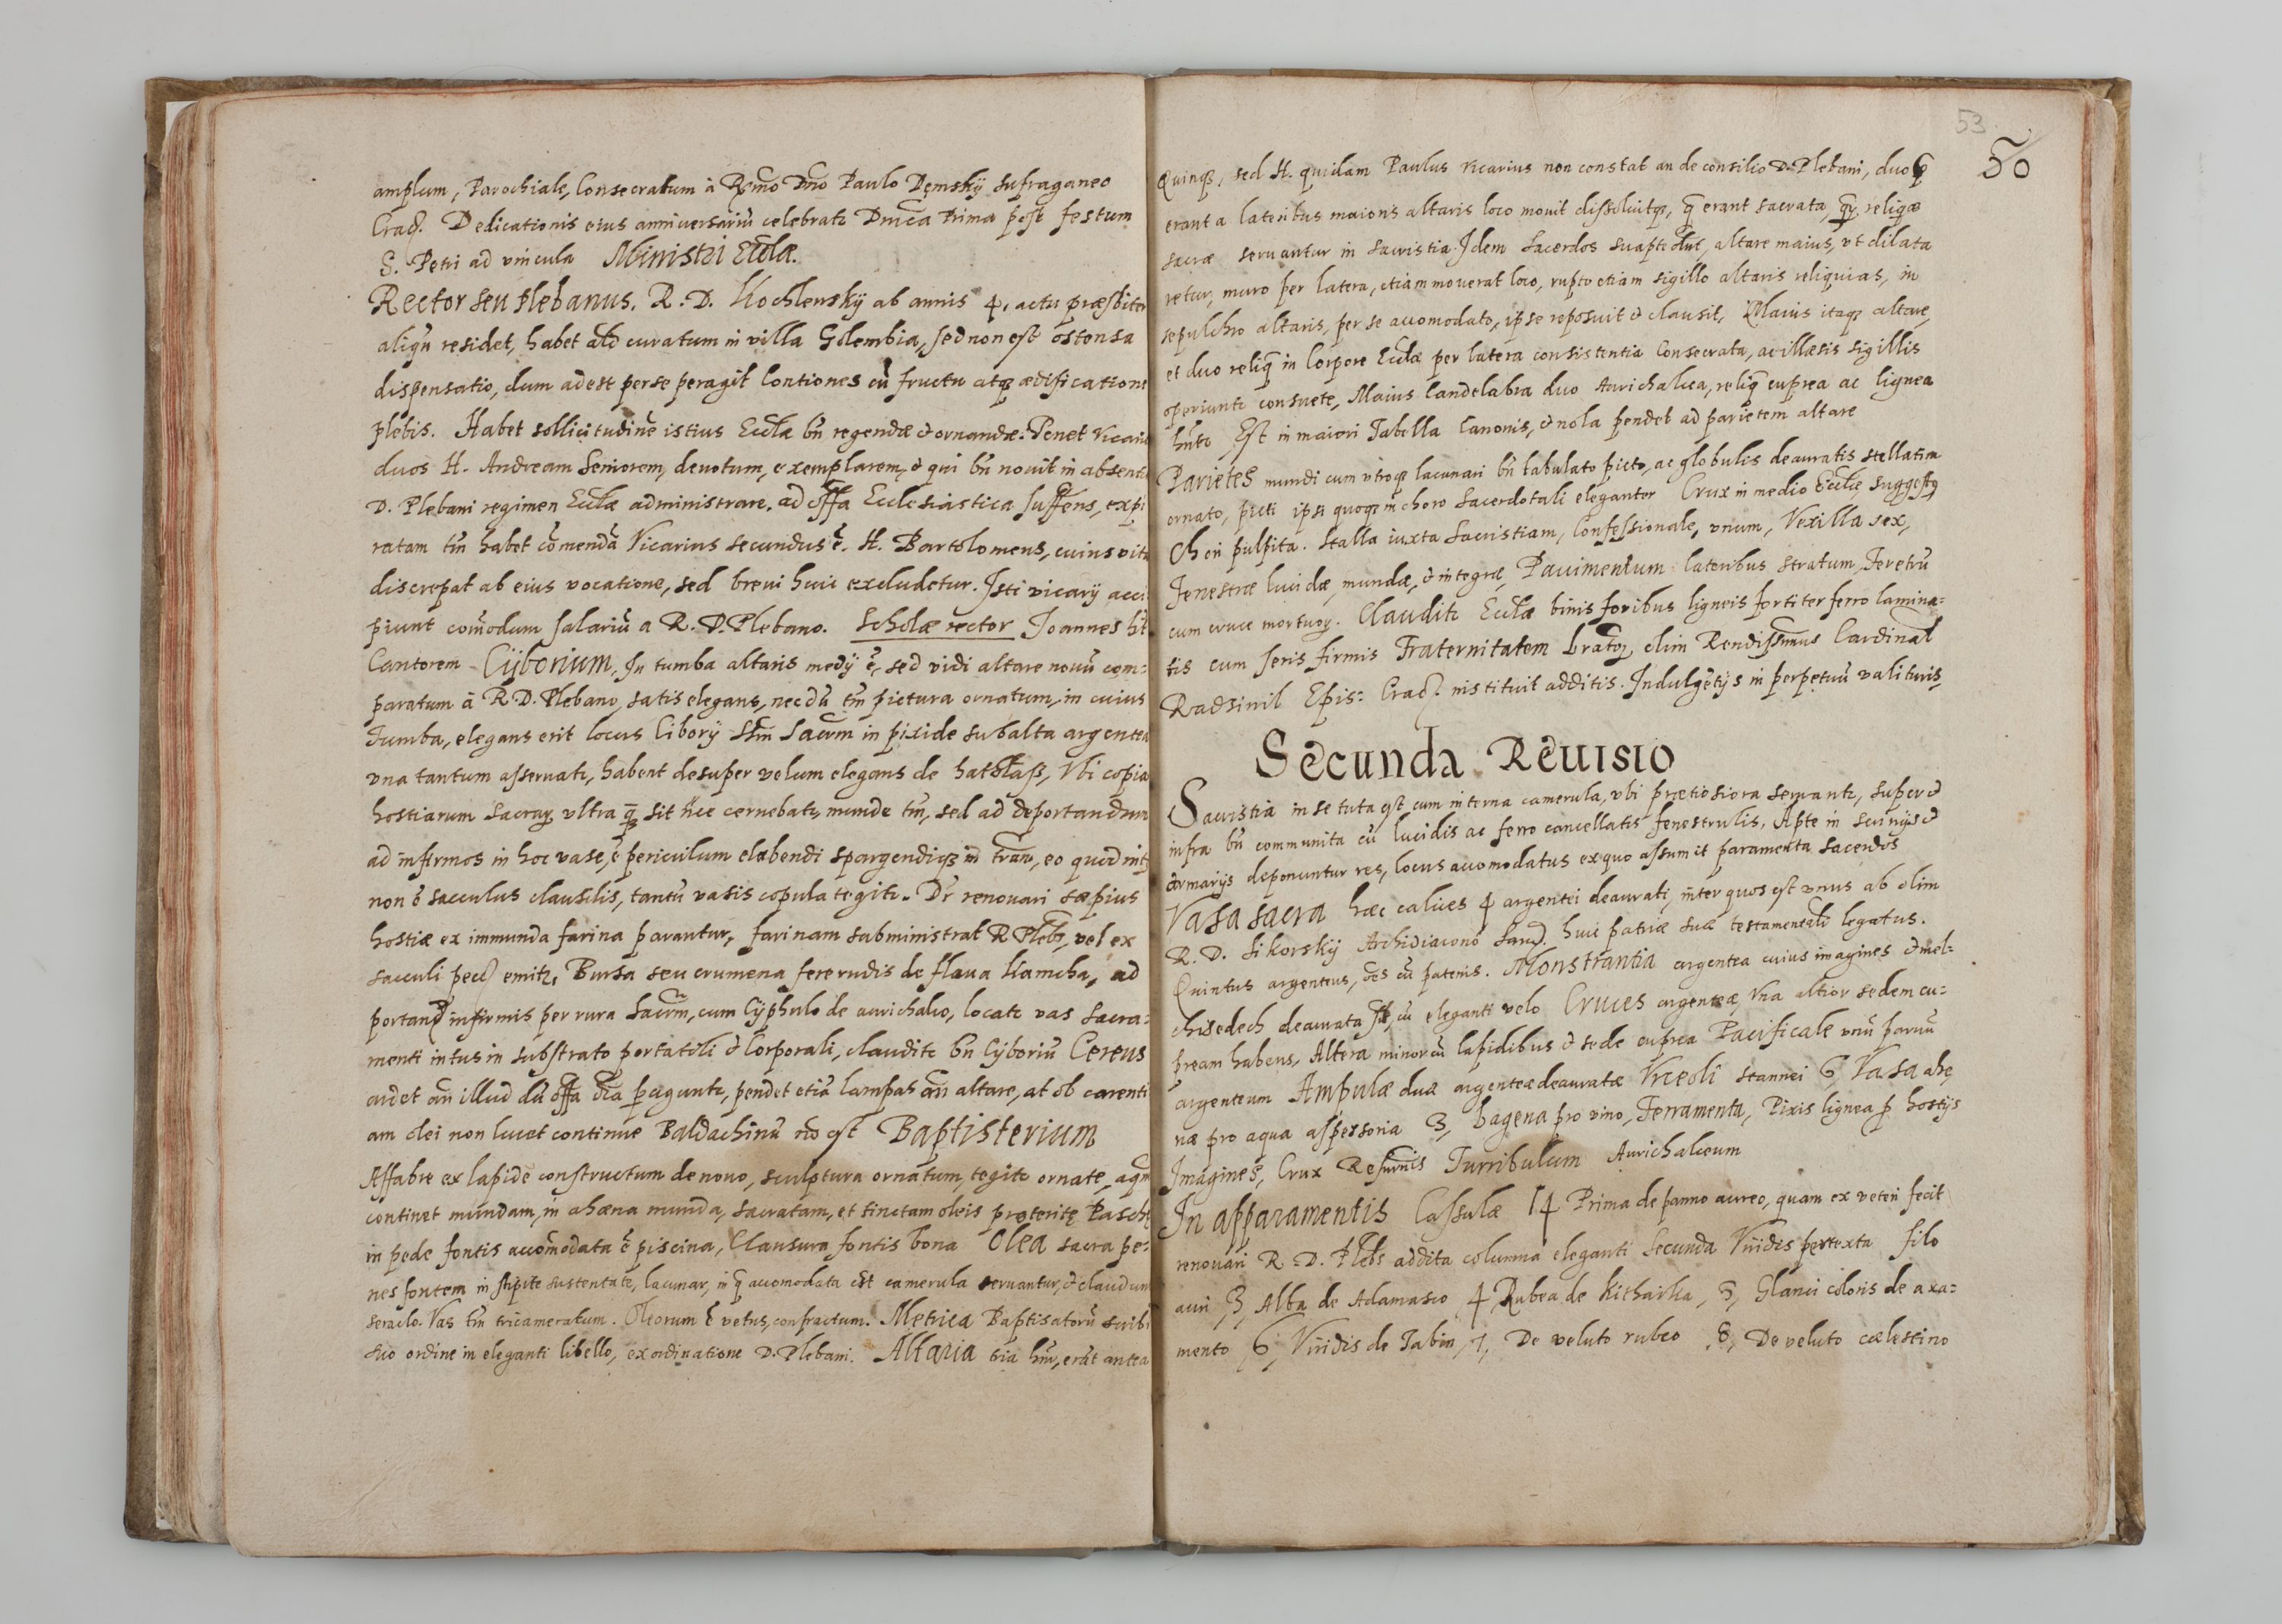 amplum, Parochiale, Consecratum à Rṽmo Dño Paulo Dęmskÿ Sufraganeo
Crac. Dedicationis eius anniversariũ celebratr Dnica Prima post festum
S. Petri ad vincula Ministri Eccłæ.
Rector seu Plebanus. R. D. Kochlenskÿ ab annis 4, actu præsbiter
aliqñ residet, habet curatum in villa Golembia, sed non est ostensa
dispensatio, dum adest per se peragit Contiones cũ fructu atq ædificatione
plebis. Habet sollicitudinẽ istius Eccłæ bñ regendæ & ornandæ. Tenet Vicarios
duos H. Andream Seniorem, devotum, exemplarem, & qui bñ novit in absentia
D. Plebani regimen Eccłæ administrare, ad offa Ecclesiastica suffens, expi
ratam tñ habet cõmendã Vicarius secundus ẽ. H. Bartolomeus, cuius vita
discrepat ab eius vocatione, sed brevi huic excludetur. Isti vicarij acci
piunt comõdum salariũ a R. D. Plebano. Scholæ rector Joannes ht
Cantorem Cÿborium, In tumba altaris medij ẽ, sed vidi altare novũ com-
paratum â R. D. Plebano, satis elegans, necdũ tñ pictura ornatum, in cuius
Tumba, elegans erit locus Ciborij Sm̃ Sacrm in pixide subalta argentea
una tantum asservatr, habent desuper velum elegans de hatłaß, Ubi copia
hostiarum sacrar ultra q sit ñce cernebatr, munde tñ, sed ad deportandum
ad infirmos in hoc vase, ẽ periculum elabendi spargendiq in trãm, eo quod int
non ẽ sacculus clausilis, tantũ vasis copula tegitr. Dr renovari sæpius
hostiæ ex immunda farina parantur, farinam subministrat R Plebs, vel ex
sacculi pec emitr, Bursa seu crumena fere rudis de flava Kamcha, ad
portand infirmis per rura Sacrm, cum Cÿphulo de aurichalco, locatr vas Sacra-
menti intus in substrato portatili & Corporali, clauditr bñ Cyboriũ Cereus
ardet añ illud dũ offa dia pagantr, pendet etiã lampas añ altare, at ob carenti
am olei non lucet continue Baldachinũ no est Baptisterium
Affabre ex lapide constructum de novo, sculptura ornatum, tegitr ornate, aqm
continet mundam, in ahæna munda, sacratam, et tinctam oleis præteritę Paschę
in pede fontis accomodata ẽ piscina, Clausura fontis bona Olea sacra pe-
nes fontem in stipite sustentate, lacunar, in q accomodata est camerula servantur, & claudun
seraclo. Vas tñ tricameratum. Oleorum ẽ vetus, confractum. Metrica Baptisatorũ scribi
suo ordine in eleganti libello, ex ordinatione D. Plebani. Altaria tria hñt, erãt antea
53
50
Quinq, sed H. quidam Paulus Vicarius non constat an de consilio D. Plebani, duo q
erant a lateribus maioris altaris loco movit dissoluitq, q erant sacrata, qr reliqæ
sacræ servantur in sacristia. Idem Sacerdos altare maius, vt dilata
retur, muro per latera, etiam moverat loco, rupto etiam sigillo altaris reliquias, in
sepulchro altaris, per se accomodato, ipse reposuit & clausit, Maius itaq altare,
et duo reliq in Corpore Eccłæ per latera consistentia Consecrata, ac illæsis sigillis
operiuntr consuete, Maius Candelabra duo Aurichalcea, reliq cuprea ac lignea
hñto Est in maiori Tabella Canonis, & nola pendet ad parietem altare
Parietes mundi cum utroq lacunari bñ tabulato picto, ac globulis deauratis stellatim
ornato, picti ipsi quoq in choro Sacerdotali eleganter Crux in medio Eccłię Suggestq
Chori pulpita. Stalla iuxta Sacristiam, Confessionale, unum, Vexilla sex,
Fenestræ lucidæ, mundæ, & integræ, Pavimentum lateribus stratum, Feretrũ
cum cruce mortuor. Clauditr Eccłæ binis foribus ligneis fortiter ferro lamina-
tis cum seris firmis Fraternitatem olim Rendissimus Cardinal
Radsivil Epis: Crac. nistituit additis. Indulgẽtijs in perpetuũ valituris,
Secunda Revisio
Sacristia in se tuta est cum interna camerula, ubi prætiosiora servantr, super &
infra bñ communita cũ lucidis ac ferro cancellatis fenestrulis. Apte in scrinijs &
armarijs deponuntur res, locus accomodatus ex quo assumit paramenta sacerdos
Vasa sacra hæc calices 4 argentei deaurati, inter quos est unus ab olim
R. D. Sikorskÿ Archidiacono Sand. huic patriæ suæ testamentali legatus.
Quintus argenteus, oẽs cũ patenis. Monstrantia argentea cuius imagines & mel-
chisedech deaurata st, cũ eleganti velo Cruces argenteæ, Una altior sedem cu-
pream habens, Altera minor cũ lapidibus & sede cuprea Pacificale unũ parvũ
argenteum Ampulæ duæ argenteæ deauratæ Urceoli stannei 6, Vasa ahe
næ pro aqua aspersoria 3, Lagena pro vino, Ferramenta, Pixis lignea p hostijs
Imagines, Crux Resurnis Turribulum Aurichalceum
In apparamentis Cassulæ 14 Prima de panno aureo, quam ex veteri fecit
renovari R. D. Plebs addita columna eleganti Secunda Viridis pertexta filo
auri 3, Alba de Adamasco 4 Rubea de Kithaika, 5, Glauci coloris de axa-
mento 6, Viridis de Tabin, 7, De veluto rubeo 8, De veluto cælestino